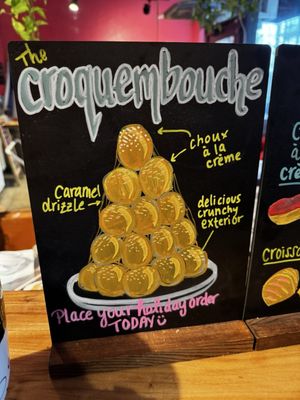 The
croquembouche
choux
à la
crème
Caramel
drizzle
delicious
crunchy
exterior
Place your holiday order
TODAY